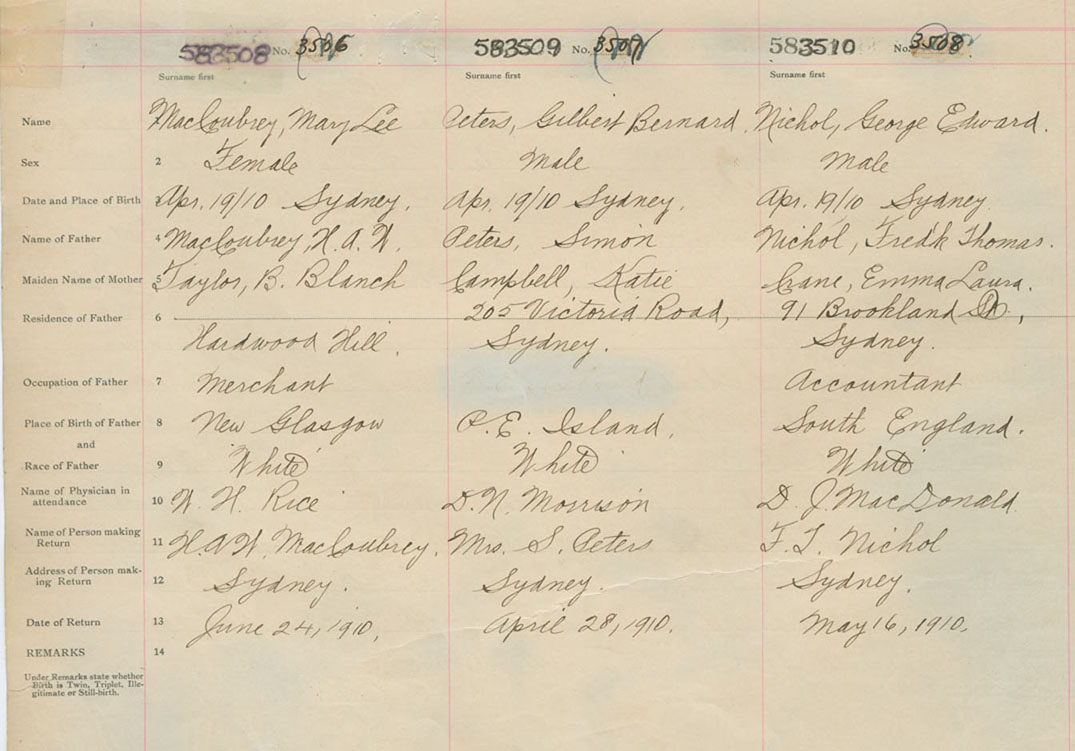 583508 No. 3506 583509 No. 3507 583510 No. 3508
Surname first Surname first Surname first
Name MacCoubrey, Mary Lee Peters, Gilbert Bernard. Nichol, George Edward.
Sex 2 Female Male Male
Date and Place of Birth Apr. 19/10 Sydney. Apr. 19/10 Sydney. Apr. 19/10 Sydney.
Name of Father 4 MacCoubrey, H. A. W. Peters, Simon Nichol, Fredk Thomas.
Maiden Name of Mother 5 Taylor, B. Blanch Campbell, Katie Crane, Emma Laura.
Residence of Father 6 205 Victoria Road, 91 Brookland
Hardwood Hill. Sydney. Sydney.
Occupation of Father 7 Merchant Accountant
Place of Birth of Father 8 New Glasgow P. E. Island. South England.
and
Race of Father 9 White White White
Name of Physician in
attendance 10 W. H. Rice D. N. Morrison D. J. MacDonald
Name of Person making
Return 11 H. A. W. MacCoubrey. Mrs. S. Peters F. T. Nichol
Address of Person mak-
ing Return 12 Sydney. Sydney. Sydney.
Date of Return 13 June 24, 1910. April 28, 1910. May 16, 1910.
REMARKS 14
Under Remarks state whether
Birth is Twin, Triplet, Ille-
gitimate or Still-birth.